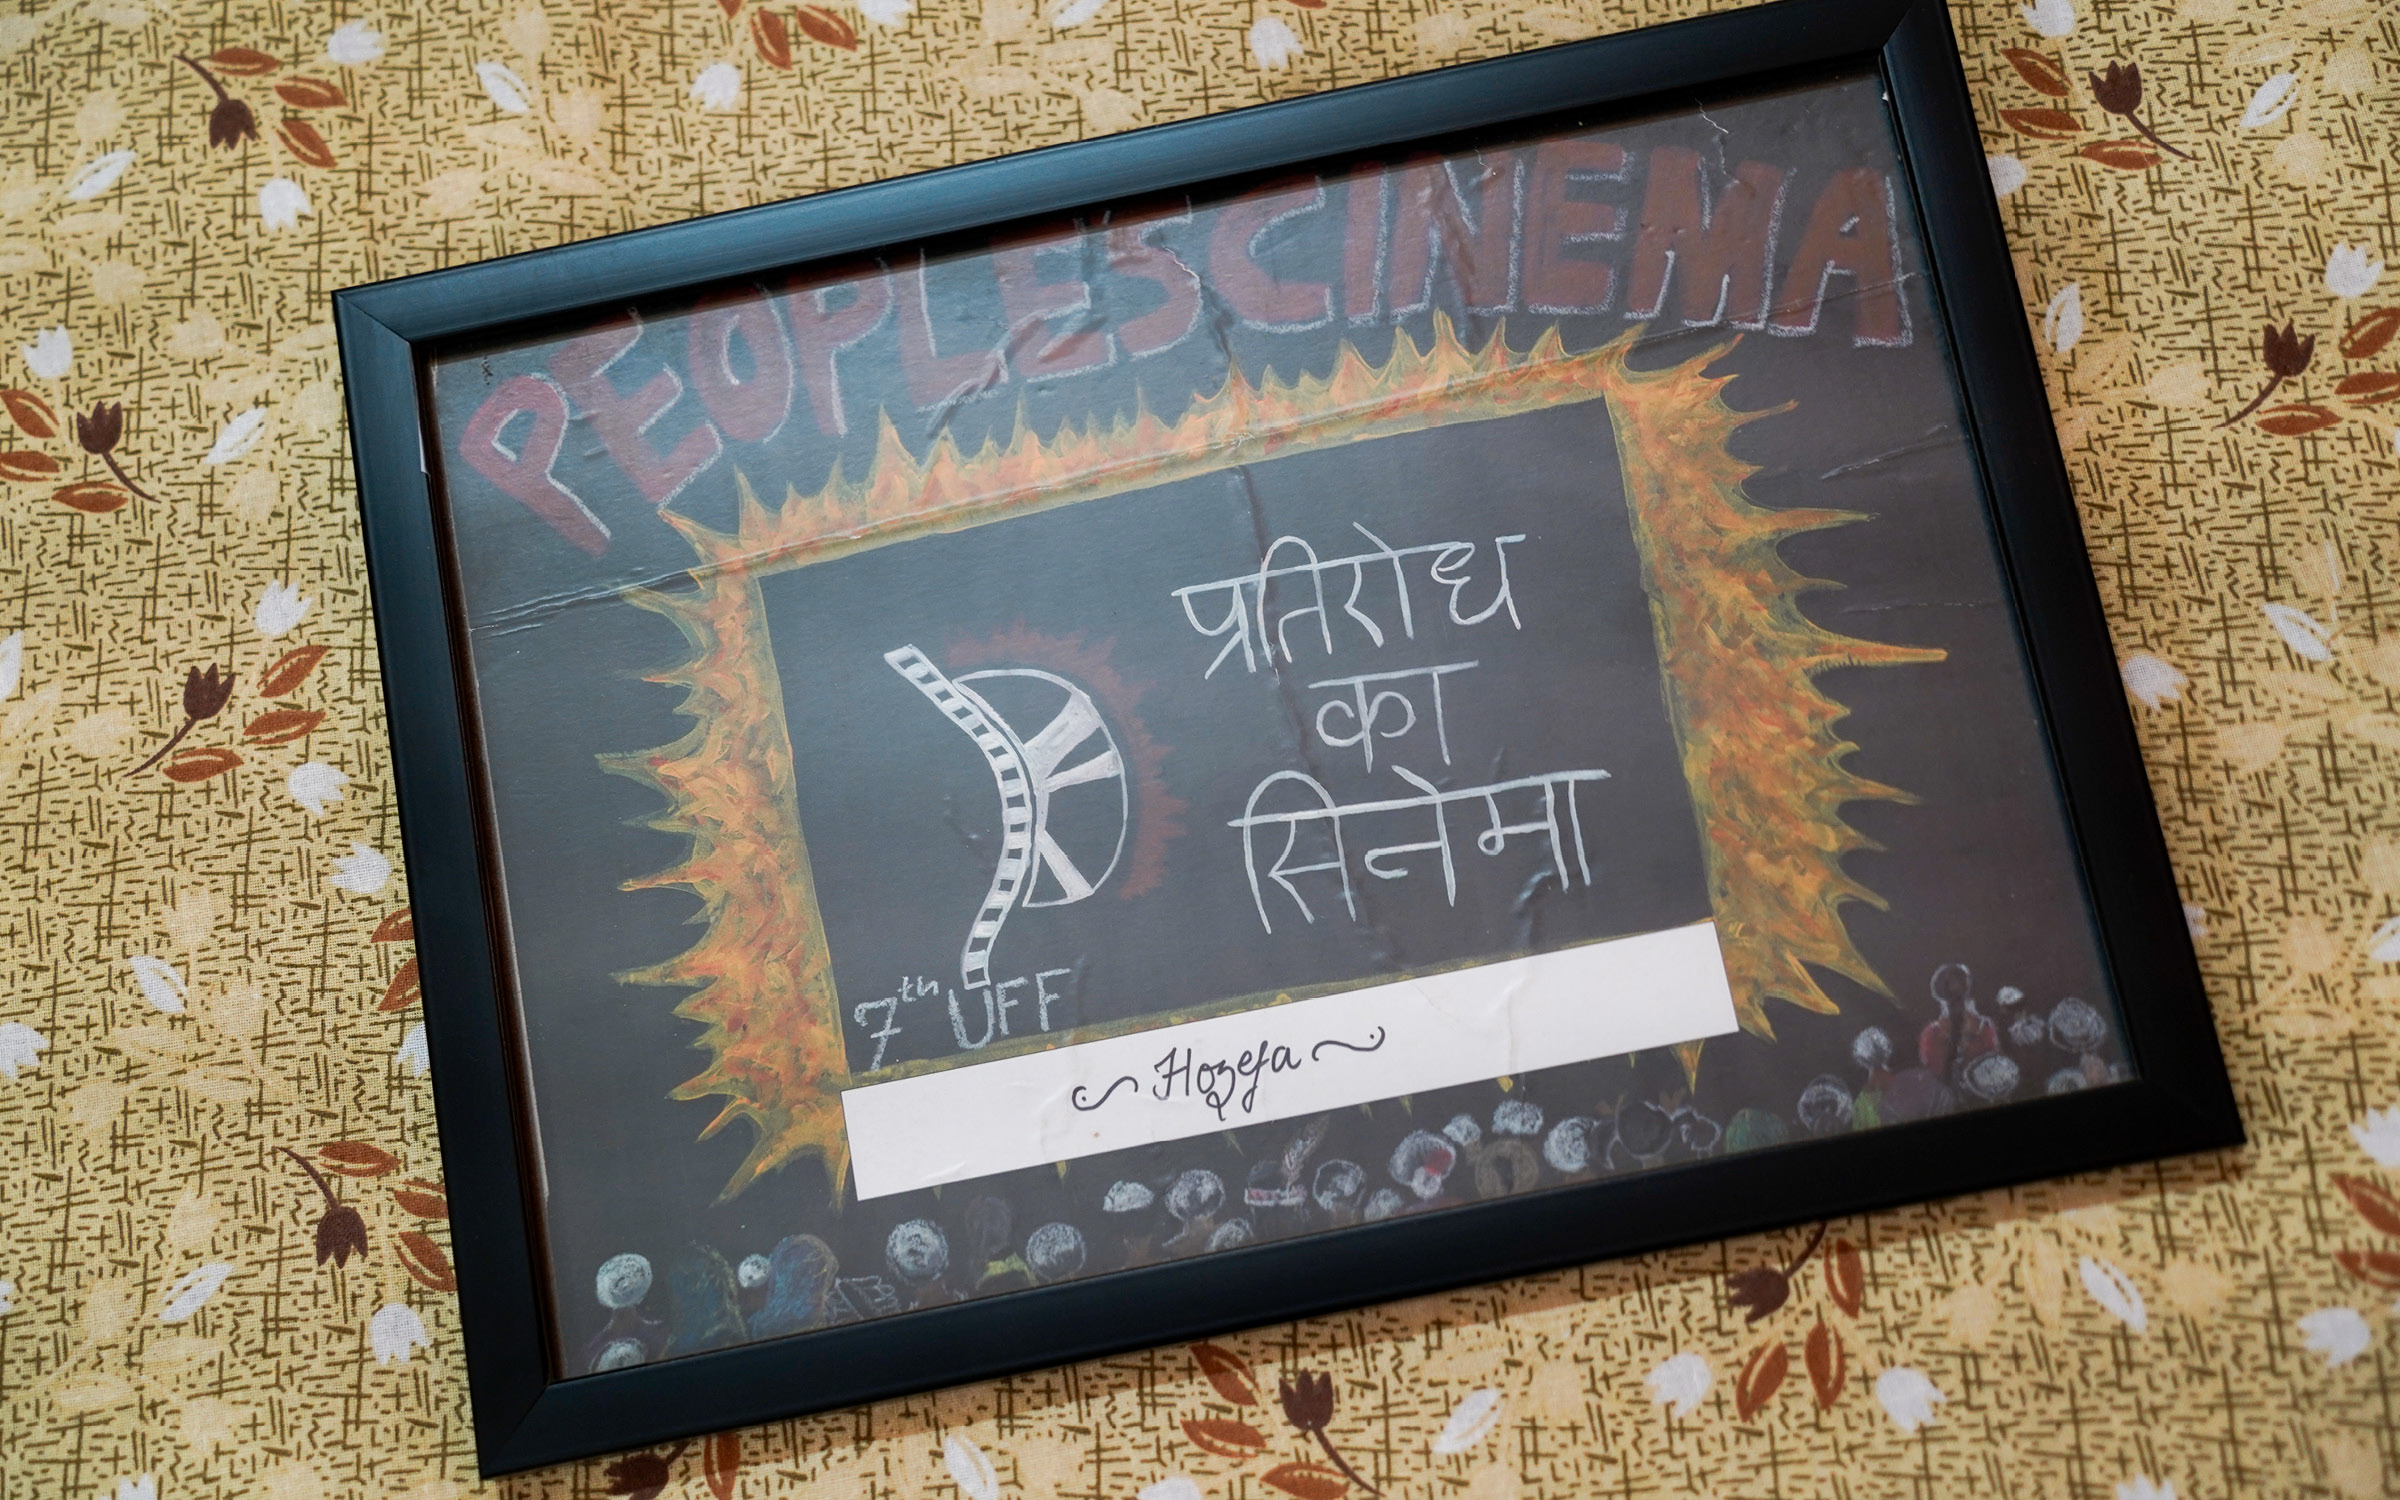 PEOPLE'S CINEMA
प्रतिरोध
का
सिनेमा
7th UFF
Hozefa